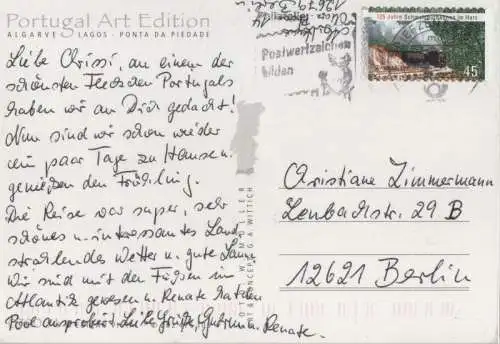 Portugal Art Edition
ALGARVE LAGOS - PONTA DA PIEDADE
Liebe Chrissi, an einem der
schönsten Flecken Portugals
haben wir an Dich gedacht!
Nun sind wir schon wieder
ein paar Tage zu Hause u.
genießen den Frühling.
Die Reise war super, sehr
schönes u. interessantes Land,
strahlendes Wetter u. gute Laune.
Wir sind mit den Füßen im
Atlantik gewesen u. Renate hat den
Pool ausprobiert. Liebe Grüße, u. Renate.
12679 Berlin
Postwertzeichen
bilden
125 Jahre im Harz
45
Christiane Zimmermann
Lenbachstr. 29 B
12621 Berlin